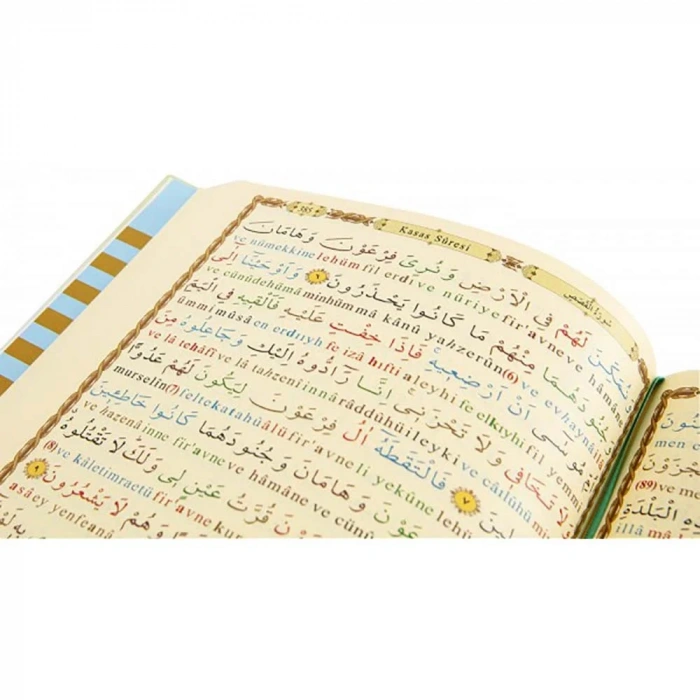 385
Kasas Sûresi
سورة القصص
وَنُمَكِّنَ لَهُمْ فِي الْاَرْضِ وَنُرِيَ فِرْعَوْنَ وَهَامَانَ
ve nümekkine lehüm fil erdi ve nüriye fir'avne ve hâmâne
وَجُنُودَهُمَا مِنْهُمْ مَا كَانُوا يَحْذَرُونَ ٦ وَاَوْحَيْنَا اِلٰى
ve cünûdehümâ minhüm mâ kânû yahzerûn(6) ve evhaynâ
مُوسٰى اَنْ اَرْضِعِيهِ فَاِذَا خِفْتِ عَلَيْهِ فَاَلْقِيهِ فِي الْيَمِّ
ümmi mûsâ en erdııyh fe izâ hıfti aleyhi fe elkıyhi fil yemmi
وَلَا تَخَافِي وَلَا تَحْزَنِي اِنَّا رَادُّوهُ اِلَيْكِ وَجَاعِلُوهُ مِنَ
ve lâ tehâfî ve lâ tahzenî innâ râddûhü ileyki ve câılûhü
٧ فَالْتَقَطَهُ اٰلُ فِرْعَوْنَ لِيَكُونَ لَهُمْ عَدُوًّا
murselîn(7) feltekatahû âlü fir'avne li yekûne lehüm
وَهَامَانَ وَجُنُودَهُمَا كَانُوا خَاطِئِينَ
ve hazenâ inne fir'avne ve hâmâne ve cünû
٨ قُرَّتُ عَيْنٍ لِي وَلَكَ لَا تَقْتُلُوهُ
(8) ve kâletimraetü fir'avne kur
وَهُمْ لَا يَشْعُرُونَ ٩
asâ ey yenfeanâ
men
(89) ve
هٰذِهِ الْبَلْدَةِ
illâ